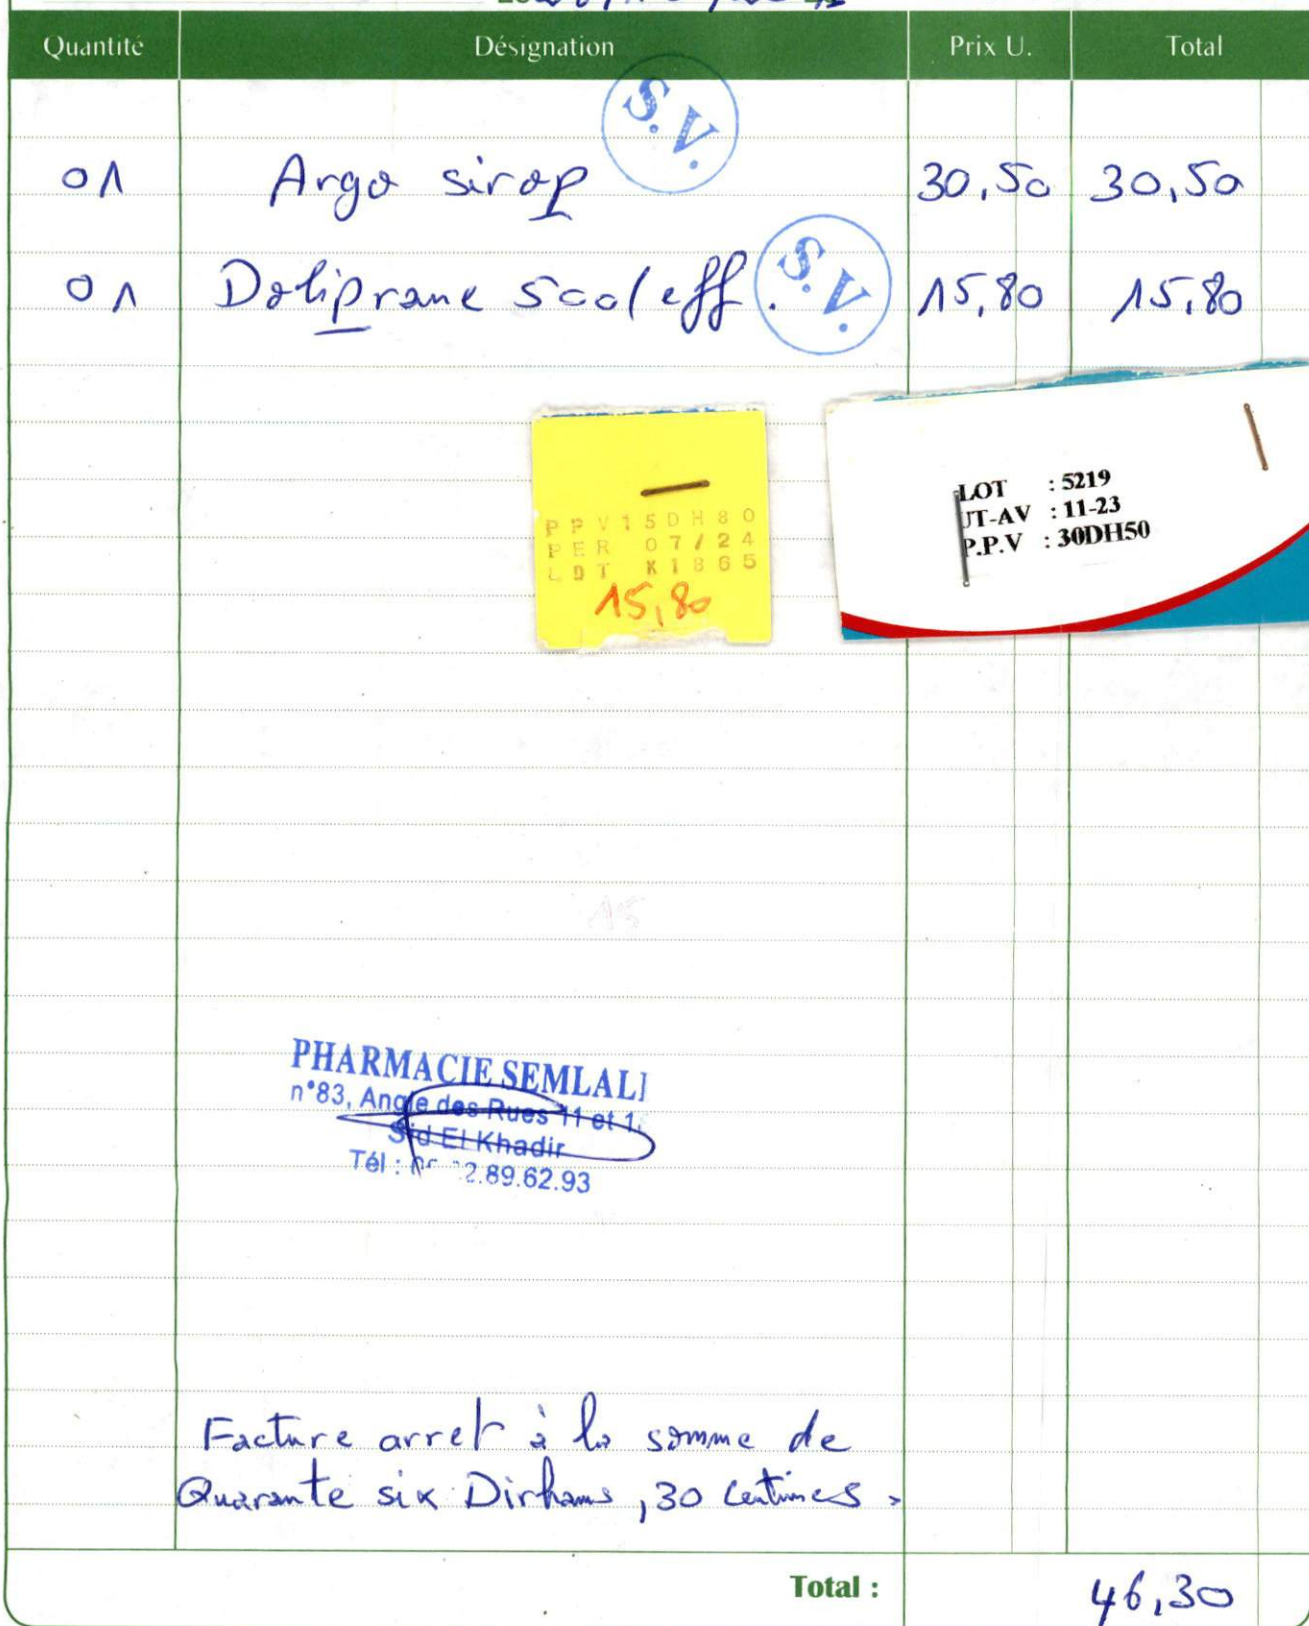 Quantité Désignation Prix U. Total
S.V.
01 Argo sirop 30,50 30,50
01 Doliprane 500/eff. S.V. 15,80 15,80
PPV15DH80
PER 07/24
LOT K1865
15,80
LOT : 5219
UT-AV : 11-23
P.P.V : 30DH50
PHARMACIE SEMLALI
n°83, Angle des Rues 11 et 1
Sid El Khadir
Tél : 2.89.62.93
Facture arret à la somme de
Quarante six Dirhams, 30 Centimes.
Total : 46,30